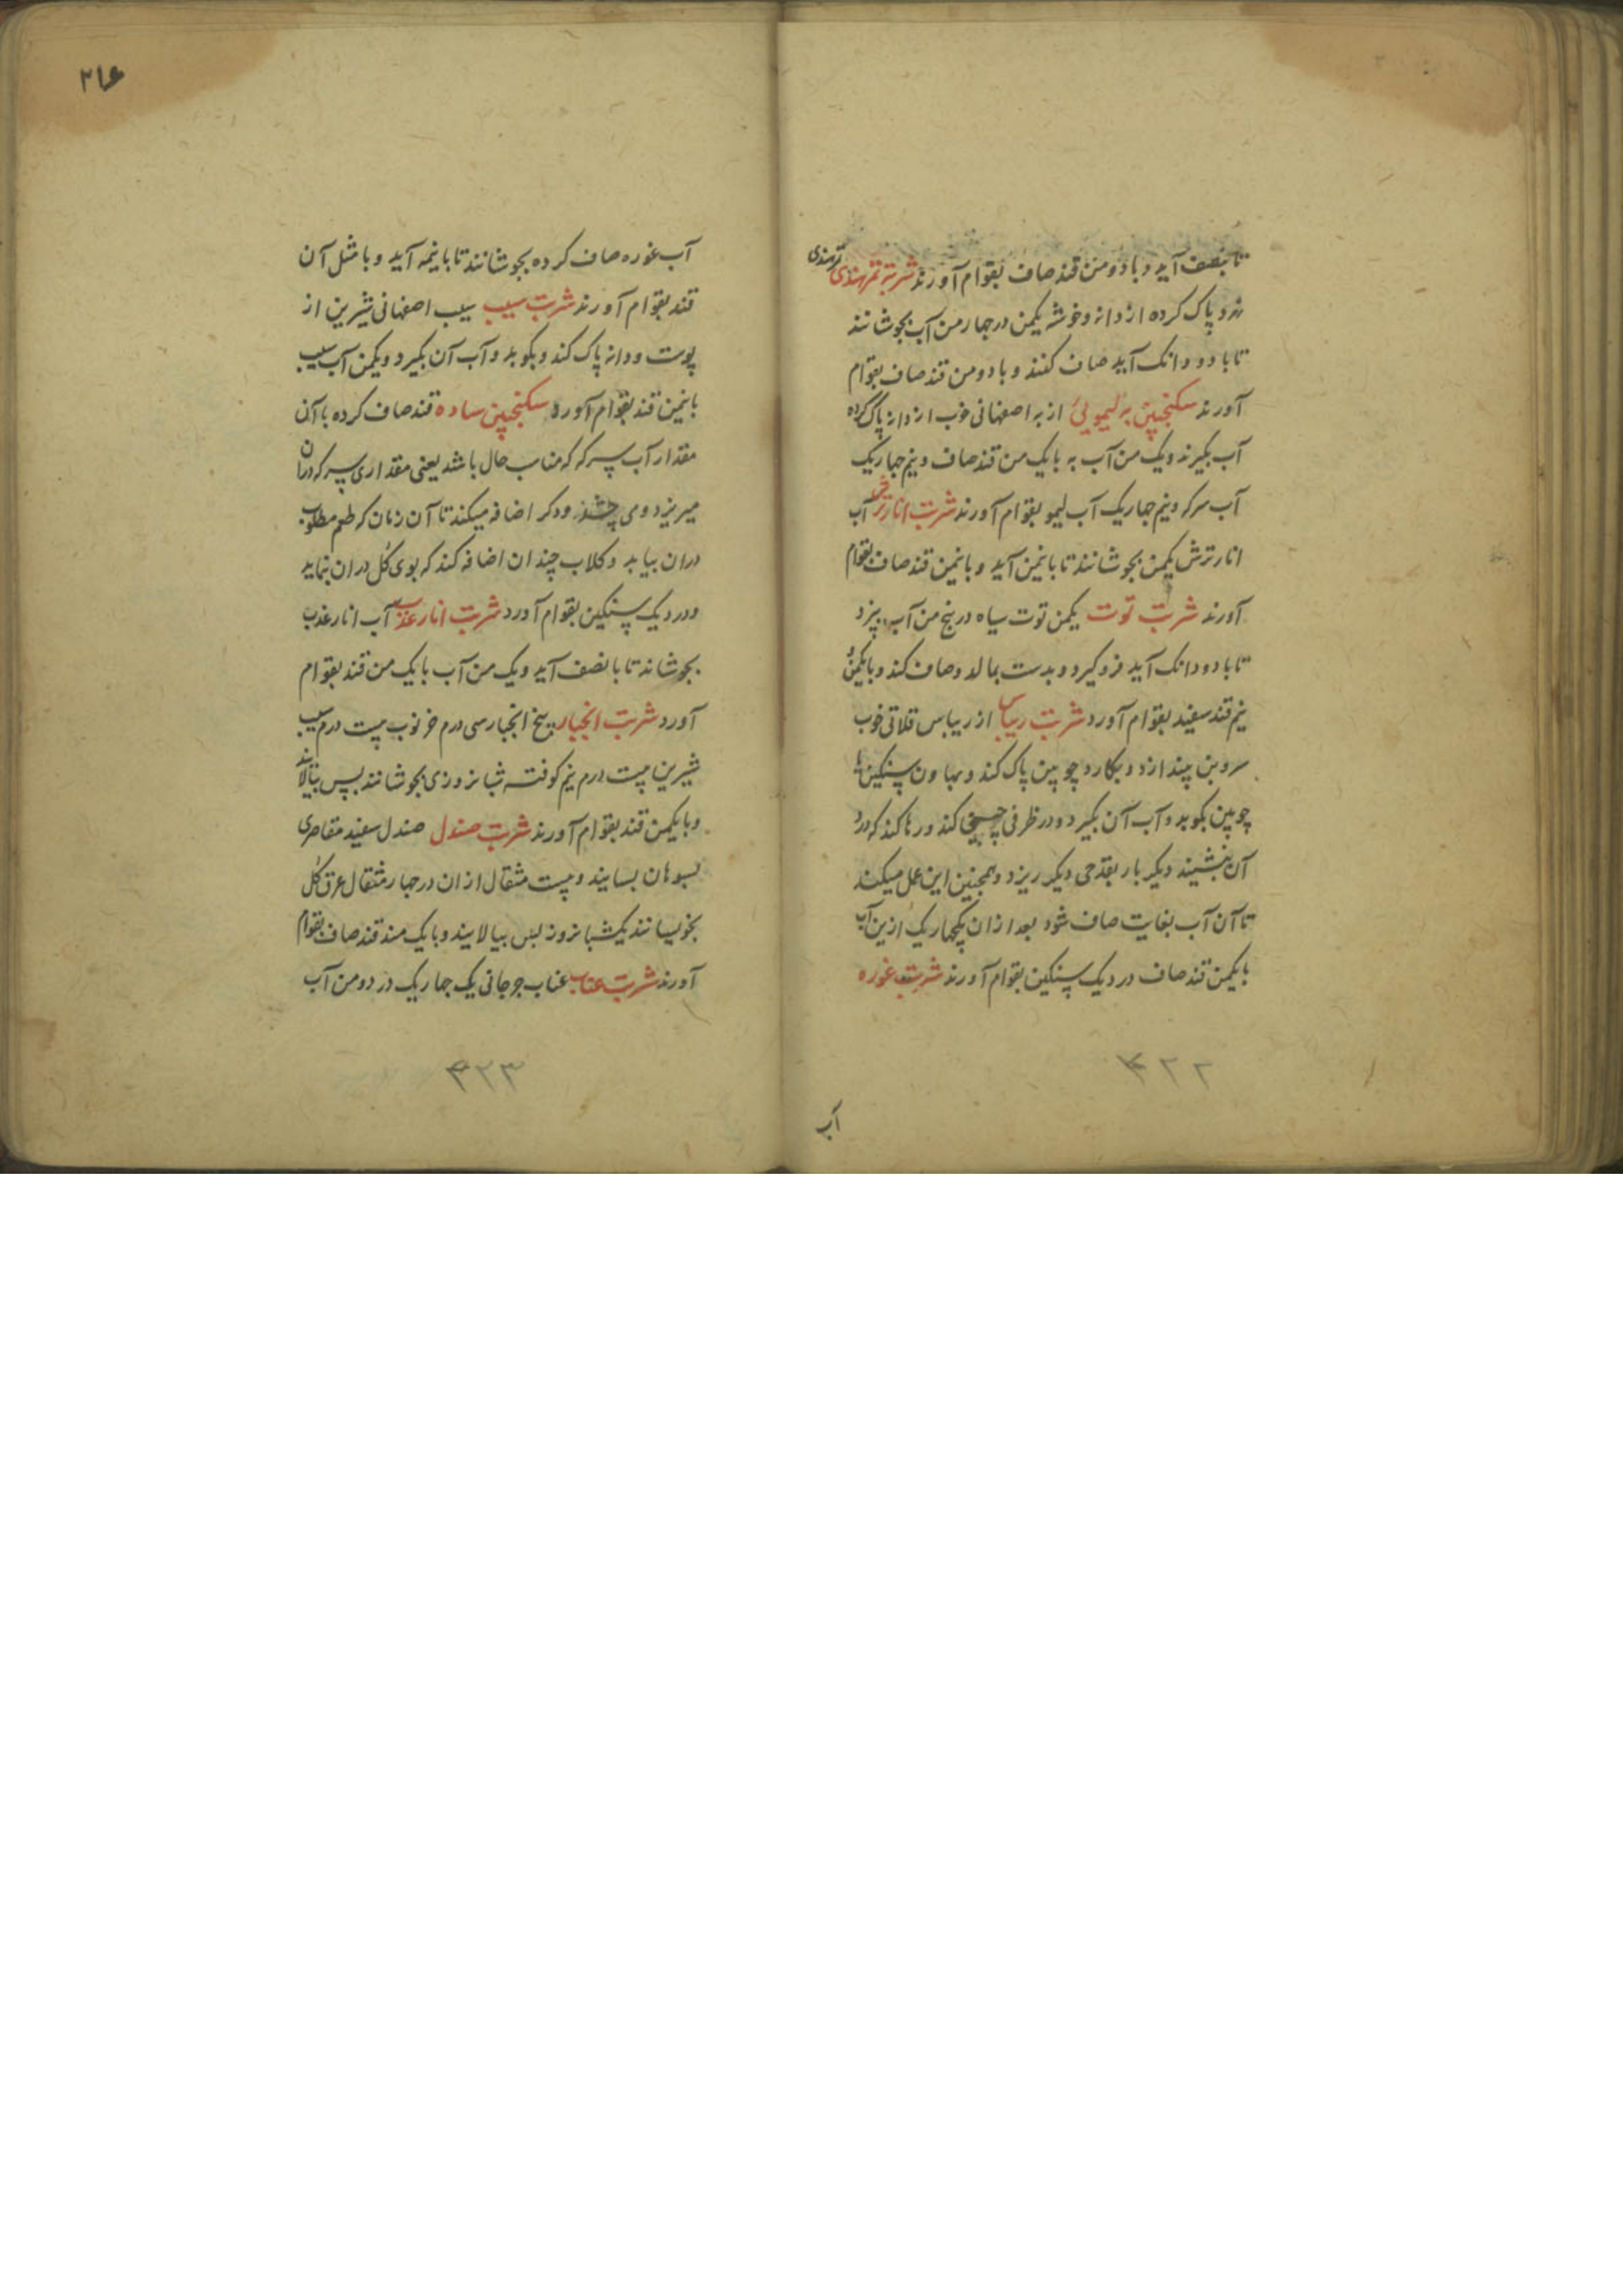 تا بنصف آید و با دو من قند صاف بقوام آورند شربت تمرهندی تمرهندی
نرد پاک کرده از دانه و خوشه یکمن در چهار من آب بجوشانند
تا با دو دانک آید صاف کنند و با دو من قند صاف بقوام
آورند سکنجبین به لیمویی از به اصفهانی خوب از دانه پاک کرده
آب بکیرند و یک من آب به با یک من قند صاف و نیم چهاریک
آب سرکه و نیم چهاریک آب لیمو بقوام آورند شربت انار ترش آب
انار ترش یکمن بجوشانند تا با نیمن آید و با نیمن قند صاف بقوام
آورند شربت توت یکمن توت سیاه در پنج من آب بپزد
تا با دو دانک آید فرو کیرد و بدست بمالد و صاف کند و با یکمن و
نیم قند سفید بقوام آورد شربت ریباس از ریباس قلاتی خوب
سر و بن بیندازد و بکارد چوبین پاک کند و بهاون سنکین یا
چوبین بکوبد و آب آن بکیرد و در ظرفی چینی کند و رها کند که درد
آن بنشیند دیکر بار بقدحی دیکر ریزد و همچنین این عمل میکند
تا آن آب بغایت صاف شود بعد از ان یکچهاریک ازین آب
با یکمن قند صاف در دیک سنکین بقوام آورند شربت غوره
۴۲۲
آب
۲۱۶
آب غوره صاف کرده بجوشانند تا با نیمه آید و با مثل آن
قند بقوام آورند شربت سیب سیب اصفهانی شیرین از
پوست و دانه پاک کند و بکوبد و آب آن بکیرد و یکمن آب سیب
با نیمن قند بقوام آورد سکنجبین ساده قند صاف کرده با آن
مقدار آب سرکه که مناسب حال باشد یعنی مقداری سرکه دران
میریزد و می چشد و دکر اضافه میکند تا آن زمان که طعم مطلوب
دران بیابد و کلاب چندان اضافه کند که بوی کل دران بنماید
و در دیک سنکین بقوام آورد شربت انار عذب آب انار عذب
بجوشاند تا با نصف آید و یک من آب با یک من قند بقوام
آورد شربت انجبار بیخ انجبار سی درم خرنوب بیست درم سیب
شیرین بیست درم نیم کوفته شبانروزی بجوشانند پس بپالاند
و با یکمن قند بقوام آورند شربت صندل صندل سفید مقاصری
بسوهان بسایند و بیست مثقال از ان در چهار مثقال عرق کل
بخویسانند یکشبانروز پس بپالایند و با یک من قند صاف بقوام
آورند شربت عناب عناب جرجانی یک چهاریک در دو من آب
۴۲۳